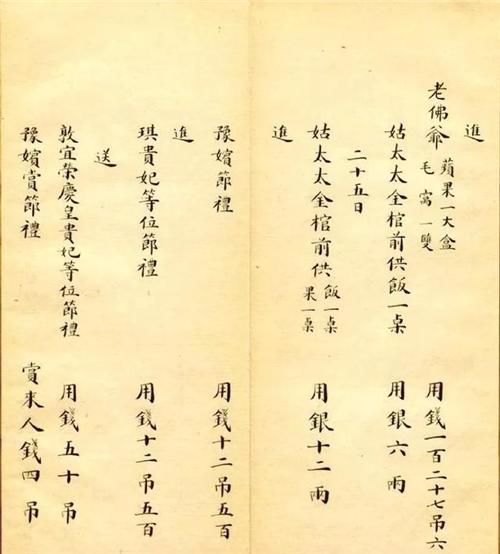 進
老佛爺 蘋果一大盒 毛窩一雙 用錢一百二十七吊六
姑太太全棺前供飯一桌 用銀六兩
二十五日
進
姑太太全棺前供 飯一桌 果一桌 用銀十二兩
豫嬪節禮 用錢十二吊五百
進
琪貴妃等位節禮 用錢十二吊五百
送
敦宜榮慶皇貴妃等位節禮 用錢五十吊
豫嬪賞節禮 賞來人錢四吊